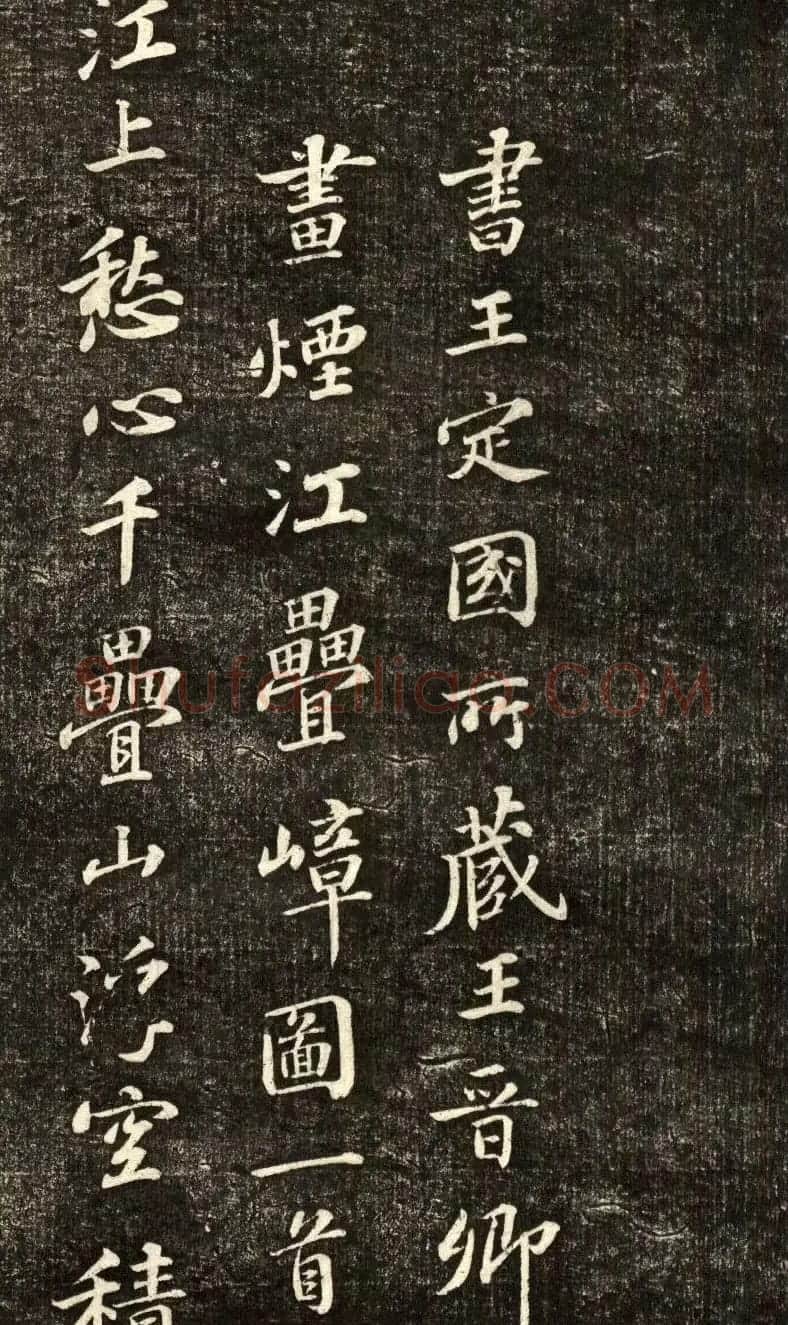 書王定國所蔵王晉卿
畫煙江疊嶂圖一首
江上愁心千疊山浮空積
Shufaziliao.COM